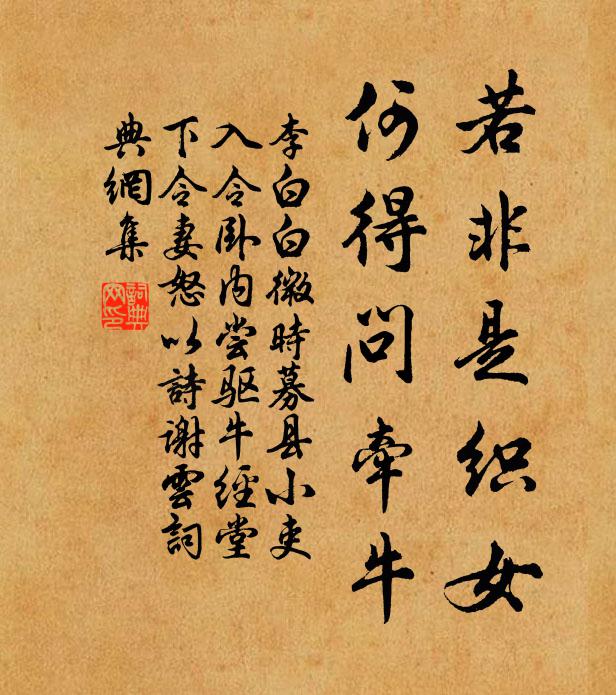 若非是织女
何得问牵牛
李白白微時募县小吏
入令卧内尝驱牛經堂
下令妻怒以詩谢雲詞
典網集
詞典
网印